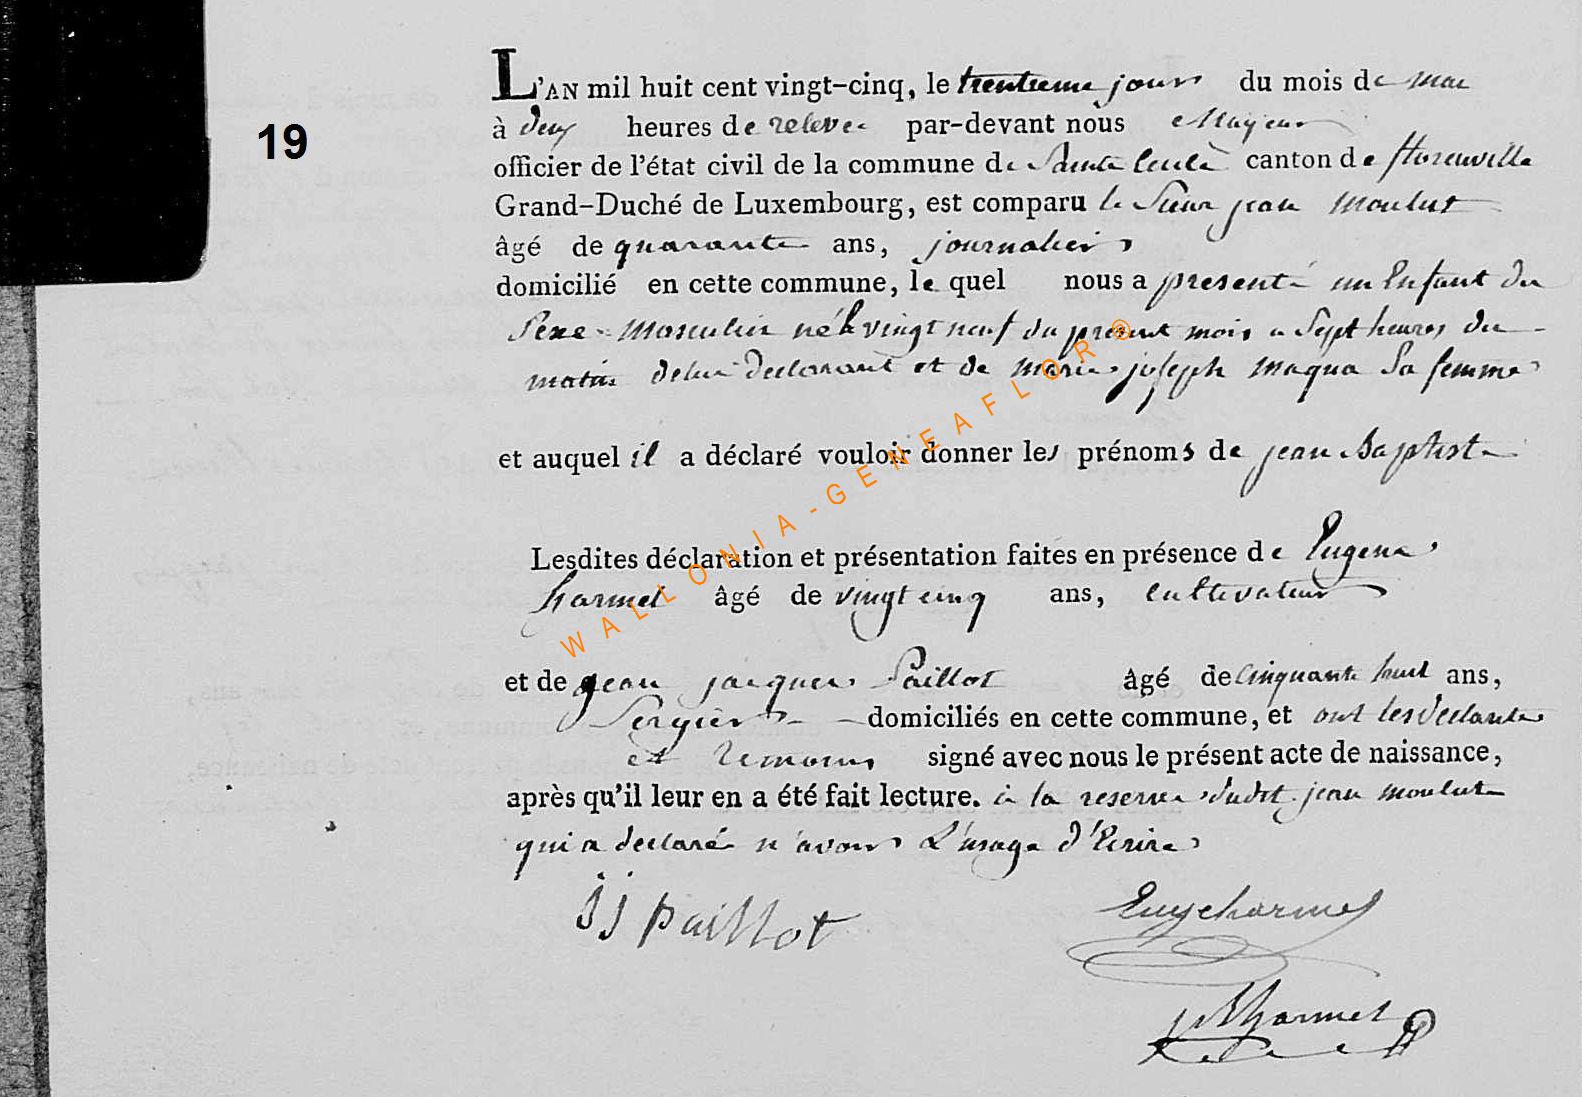 L'AN mil huit cent vingt-cinq, le trentieme jour du mois de mai
19
à deux heures de relevée par-devant nous Mayeur
officier de l'état civil de la commune de Sainte Cecile canton de florenville
Grand-Duché de Luxembourg, est comparu le Sieur jean moulut
âgé de quarante ans, journalier
domicilié en cette commune, le quel nous a presenté un Enfant du
Sexe masculin né le vingt neuf du present mois a Sept heures du
matin de lui declarant et de marie joseph maqua Sa femme
et auquel il a déclaré vouloir donner les prénoms de jean Baptiste
Lesdites déclaration et présentation faites en présence de Eugene
harmel âgé de vingt cinq ans, cultivateur
et de jean jacques Paillot âgé de cinquante huit ans,
Sergier domiciliés en cette commune, et ont les declarants
et temoins signé avec nous le présent acte de naissance,
après qu'il leur en a été fait lecture. à la reserve dudit jean moulut
qui a declaré n'avoir L'usage d'Ecrire
jj paillot
Eug charmel
harmel
WALLONIA-GENEAFLOR®